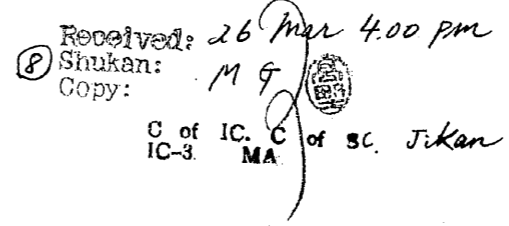 Received: 26 Mar 4.00 pm
⑧ Shukan: M G
Copy:
C of IC. C of SC. Jikan
IC-3. MA